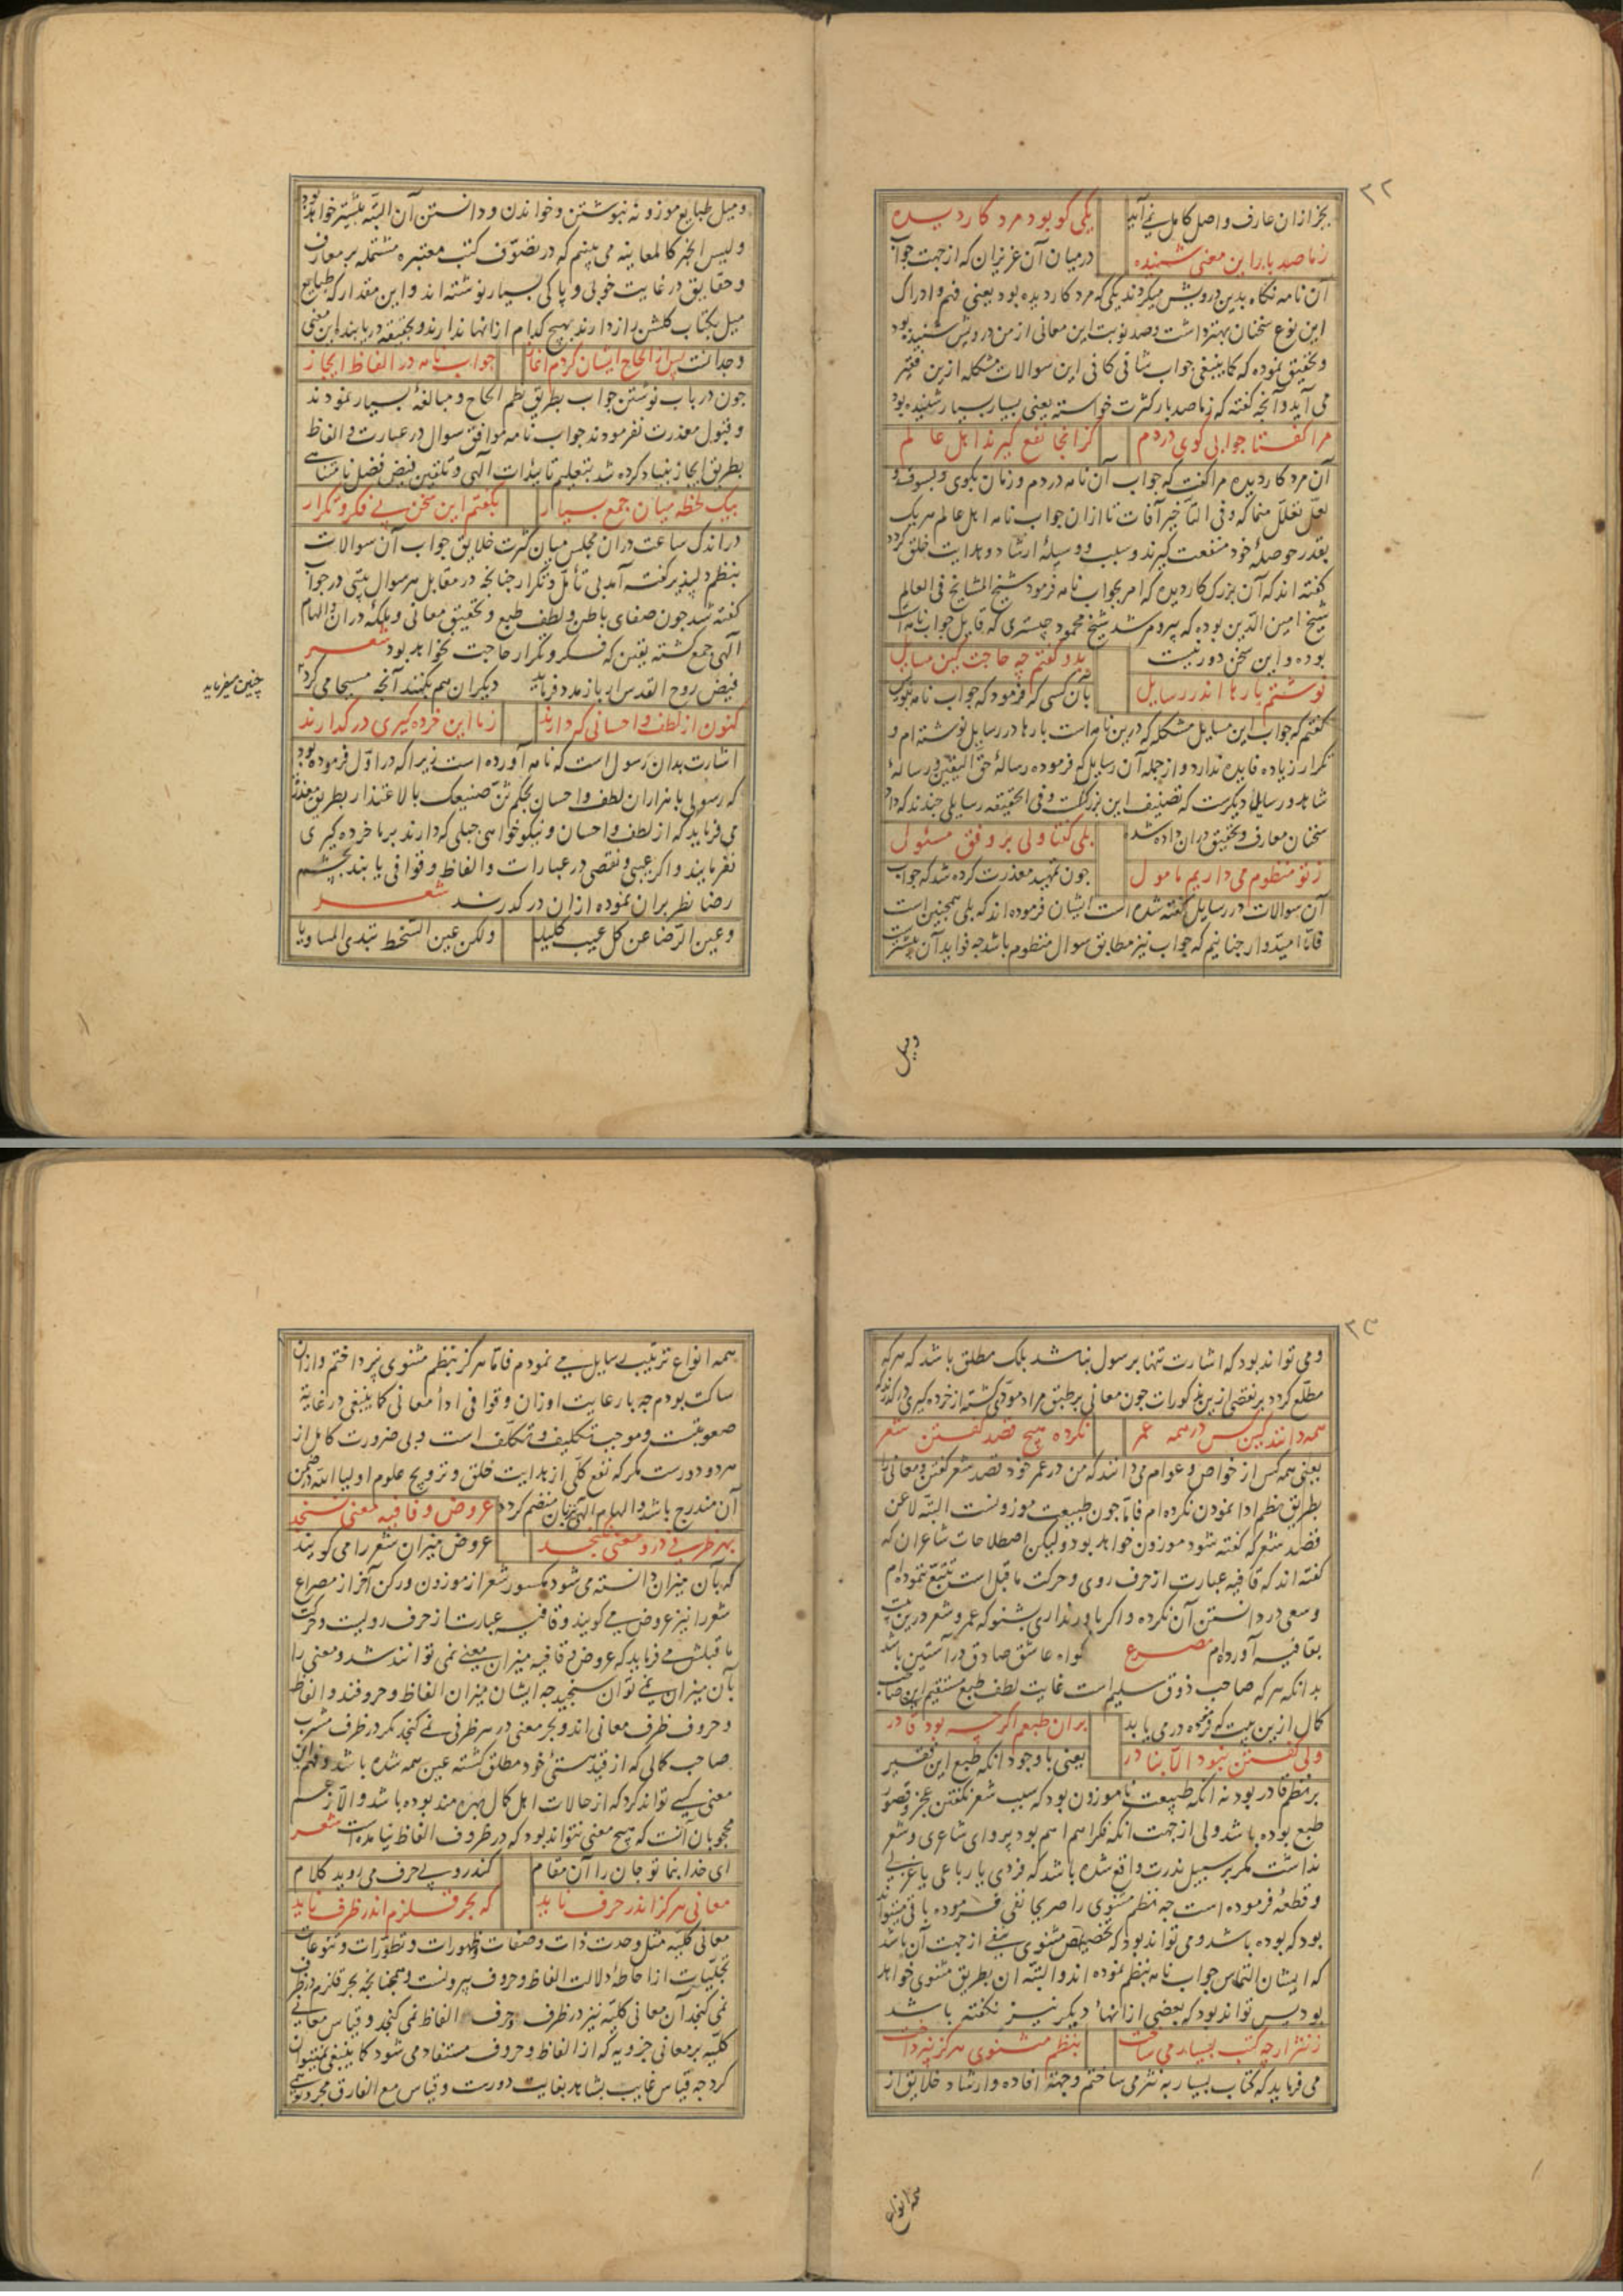 ۲۲
بجز ازان عارف و اصل کامل نمی آید
یکی کو بود مرد کار دیده
زما صد بار این معنی شنیده
در میان آن عزیزان که از جهت جواب
آن نامه نکاه بدین درویش میکردند یکی که مرد کار دیده بود یعنی فهم و ادراک
این نوع سخنان بهتر داشت و صد نوبت این معانی از من درویش شنیده بود
و تحقیق نموده که کما ینبغی جواب شافی کافی این سوالات مشکله ازین فقیر
می آید و آنچه گفته که زما صد بار کثرت خواسته یعنی بسیار بسیار شنیده بود
مرا گفتا جوابی کوی در دم
کز انجا نفع گیرند اهل عالم
آن مرد کار دیده مرا گفت که جواب آن نامه در دم و زمان بکوی و بسوف و
لعل تعلل منما که و فی التأخیر آفات تا ازان جواب نامه اهل عالم هر یک
بقدر حوصله خود منفعت گیرند و سبب و وسیلهٔ ارشاد و هدایت خلق کردد
گفته اند که آن بزرک کار دیده که امر بجواب نامه فرمود شیخ المشایخ فی العالم
شیخ امین الدین بوده که پیر و مرشد شیخ محمود چبستری که قایل جواب نامه است
بوده و این سخن دور نیست
بدو گفتم چه حاجت کین مسایل
نوشتم بارها اندر رسایل
بآن کسی که فرمود که جواب نامه بکوی
گفتم که جواب این مسایل مشکله که درین نامه است بارها در رسایل نوشته ام و
تکرار زیاده فایده ندارد و از جمله آن رسایل که فرموده رسالهٔ حق الیقین و رسالهٔ
شاهد و رسایل دیگرست که تصنیف این بزرگست و فی الحقیقه رسایلی چندند که داد
سخنان معارف و تحقیق دران داده شد
بلی گفتا ولی بر وفق مسئول
ز تو منظوم می داریم مامول
جون تمهید معذرت کرده شد که جواب
آن سوالات در رسایل گفته شده است ایشان فرموده اند که بلی همچنین است
فاما امیدوار جنانیم که جواب نیز مطابق سوال منظوم باشد جه فواید آن بیشتر
ومیل
ومیل طبایع موزونه نبوشتن و خواندن و دانستن آن البته بیشتر خواهد بود
و لیس الخبر کالمعاینه می بینم که در تصوف کتب معتبره مشتمله بر معارف
و حقایق در غایت خوبی و پاکی بسیار نوشته اند و این مقدار که طبایع
میل بکتاب گلشن راز دارند بهیچ کدام ازانها ندارند و بحقیقه دریابند این معنی
وجدانست
پس از الحاح ایشان کردم آغاز
جواب نامه در الفاظ ایجاز
جون در باب نوشتن جواب بطریق نظم الحاح و مبالغهٔ بسیار نمودند
و قبول معذرت نفرمودند جواب نامه موافق سوال در عبارت و الفاظ
بطریق ایجاز بنیاد کرده شد بتعلیم تاییدات الهی و تلقین فیض فضل نامتناهی
بیک لحظه میان جمع بسیار
بگفتم این سخن بی فکر و تکرار
در اندک ساعت دران مجلس میان کثرت خلایق جواب آن سوالات
بنظم دلپذیر گفته آمد بی تأمل و تکرار جنانجه در مقابل هر سوال بیتی در جواب
گفته شد جون صفای باطن و لطف طبع و تحقیق معانی و ملکه دران و الهام
الهی جمع گشته یقین که فکر و تکرار حاجت نخواهد بود شعر
فیض روح القدس ار باز مدد فرماید
دیگران هم بکنند آنچه مسیحا می کرد
چنین میفرماید
کنون از لطف و احسانی که دارند
زما این خرده گیری در گذارند
اشارت بدان رسول است که نامه آورده است زیرا که در اول فرموده بود
که رسولی با هزاران لطف و احسان بحکم ثن صنیعک بالاعتذار بطریق معذرت
می فرماید که از لطف و احسان و نیکو خواهی جبلی که دارند بر ما خرده گیری
نفرمایند و اگر عیبی و نقصی در عبارات و الفاظ و قوافی یابند بچشم
رضا نظر بران نموده ازان در گذرند شعر
و عین الرضا عن کل عیب کلیلة
ولکن عین السخط تبدی المساویا
۲۳
و می تواند بود که اشارت تنها برسول نباشد بلک مطلق باشد که هر که
مطلع گردد بر نقصی ازین مذکورات جون معانی بر طبق مراد مودی گشته از خرده گیری در گذرند
همه دانند کین کس در همه عمر
نکرده هیچ قصد گفتن شعر
یعنی همه کس از خواص و عوام می دانند که من در عمر خود قصد شعر گفتن و معانی را
بطریق نظم ادا نمودن نکرده ام فاما جون طبیعت موزونست البته لا عن
قصد شعر که گفته شود موزون خواهد بود ولیکن اصطلاحات شاعران که
گفته اند که قافیه عبارت از حرف روی و حرکت ما قبل است تتبع ننموده ام
و سعی در دانستن آن نکرده و اگر باور نداری بشنو که عمر و شعر درین بیت
بقافیه آورده ام مصرع
گواه عاشق صادق در آستین باشد
بدانکه هر که صاحب ذوق سلیم است غایت لطف طبع مستقیم این صاحب
کمال ازین بیت که فرموده در می یابد
بران طبعم اگر چه بود قادر
ولی گفتن نبود الا بنادر
یعنی با وجود انکه طبع این فقیر
بر نظم قادر بود نه انکه طبیعت ناموزون بود که سبب شعر نگفتن عجز و قصور
طبع بوده باشد ولی از جهت انکه فکر اهم اهم بود پروای شاعری و شعر
نداشت مگر بر سبیل ندرت واقع شده باشد که فردی یا رباعی یا غزلی
و قطعهٔ فرموده است جه نظم مثنوی را صریحا نفی فرموده باقی میتواند
بود که بوده باشد و می تواند بود که تخصیص مثنوی بنفی از جهت آن باشد
که ایشان التماس جواب نامه بنظم نموده اند و البته ان بطریق مثنوی خواهد
بود پس تواند بود که بعضی ازانهاء دیگر نیز نگفته باشد
ز نثر ار چه کتب بسیار می ساخت
بنظم مثنوی هرگز نپرداخت
می فرماید که کتاب بسیار به نثر می ساختم و جهة افاده و ارشاد خلایق از
همه انواع
همه انواع ترتیب رسایل می نمودم فاما هرگز بنظم مثنوی نپرداختم و ازان
ساکت بودم جه با رعایت اوزان و قوافی اداء معانی کما ینبغی در غایة
صعوبتست و موجب تکلیف و تکلف است و بی ضرورت کامل از
هر دو دورست مگر که نفع کلی از هدایت خلق و ترویج علوم اولیاء الله در ضمن
آن مندرج باشد و الهام الهی بآن منضم گردد
عروض و قافیه معنی نسنجد
بهر ظرفی درو معنی نگنجد
عروض میزان شعر را می گویند
که بآن میزان دانسته می شود مکسور شعر از موزون و رکن آخر از مصراع
شعر را نیز عروض می گویند و قافیه عبارت از حرف رویست و حرکت
ما قبلش می فرماید که عروض و قافیه میزان معنی نمی توانند شد و معنی را
بآن میزان نمی توان سنجید جه ایشان میزان الفاظ و حروفند و الفاظ
و حروف ظرف معانی اند و بحر معنی در هر ظرفی نمی گنجد مگر در ظرف مشرب
صاحب کمالی که از قید هستی خود مطلق گشته عین همه شده باشد و فهم این
معنی کسی تواند کرد که از حالات اهل کمال بهره مند بوده باشد و الا زعم
محجوبان آنست که هیچ معنی نتواند بود که در ظروف الفاظ نیامده است شعر
ای خدا بنما تو جان را آن مقام
کندرو بی حرف می روید کلام
معانی هرگز اندر حرف ناید
که بحر قلزم اندر ظرف ناید
معانی کلیه مثل وحدت ذات و صفات و ظهورات و تطورات و تنوعات
تجلیات از احاطهٔ دلالت الفاظ و حروف بیرونست و همچنانجه بحر قلزم در ظرف
نمی گنجد آن معانی کلیه نیز در ظرف حرف و الفاظ نمی گنجد و قیاس معانی
کلیه بر معانی جزویه که از الفاظ و حروف مستفاد می شود کما ینبغی نمیتوان
کرد جه قیاس غایب بشاهد بغایت دورست و قیاس مع الفارق مجرد توهمی